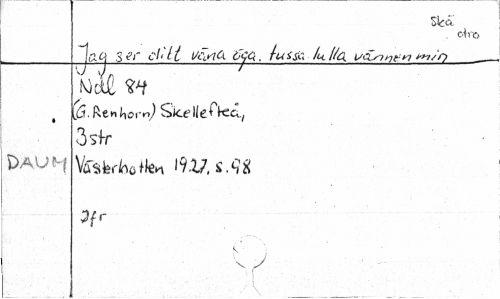 Skä
otro
Jag ser ditt våna öga. tussa lulla vännen min
Nol 84
(G. Renhorn) Skellefteå,
3 str
DAUM Västerbotten 1927, s. 98
Jfr